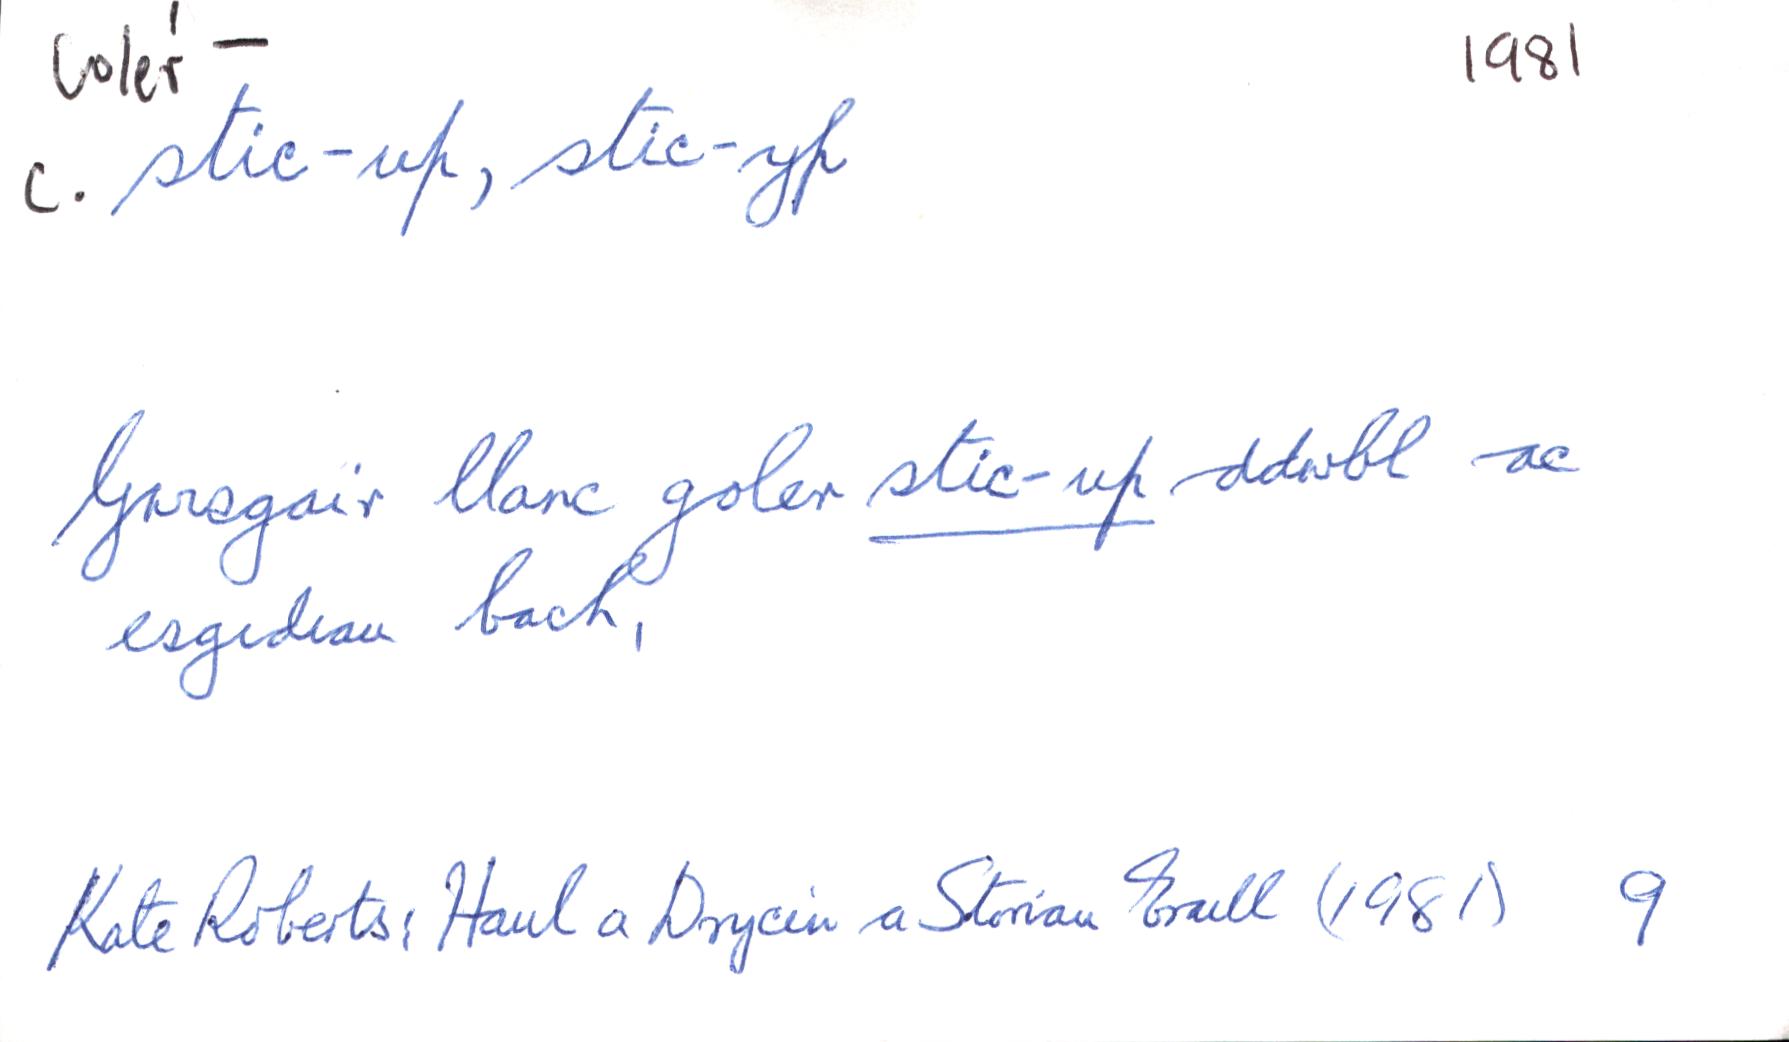 coler¹ – 1981
c. stic-up, stic-yp
Gwisgair llanc goler stic-up ddwbl ac
esgidiau bach,
Kate Roberts: Haul a Drycin a Storïau Eraill (1981) 9